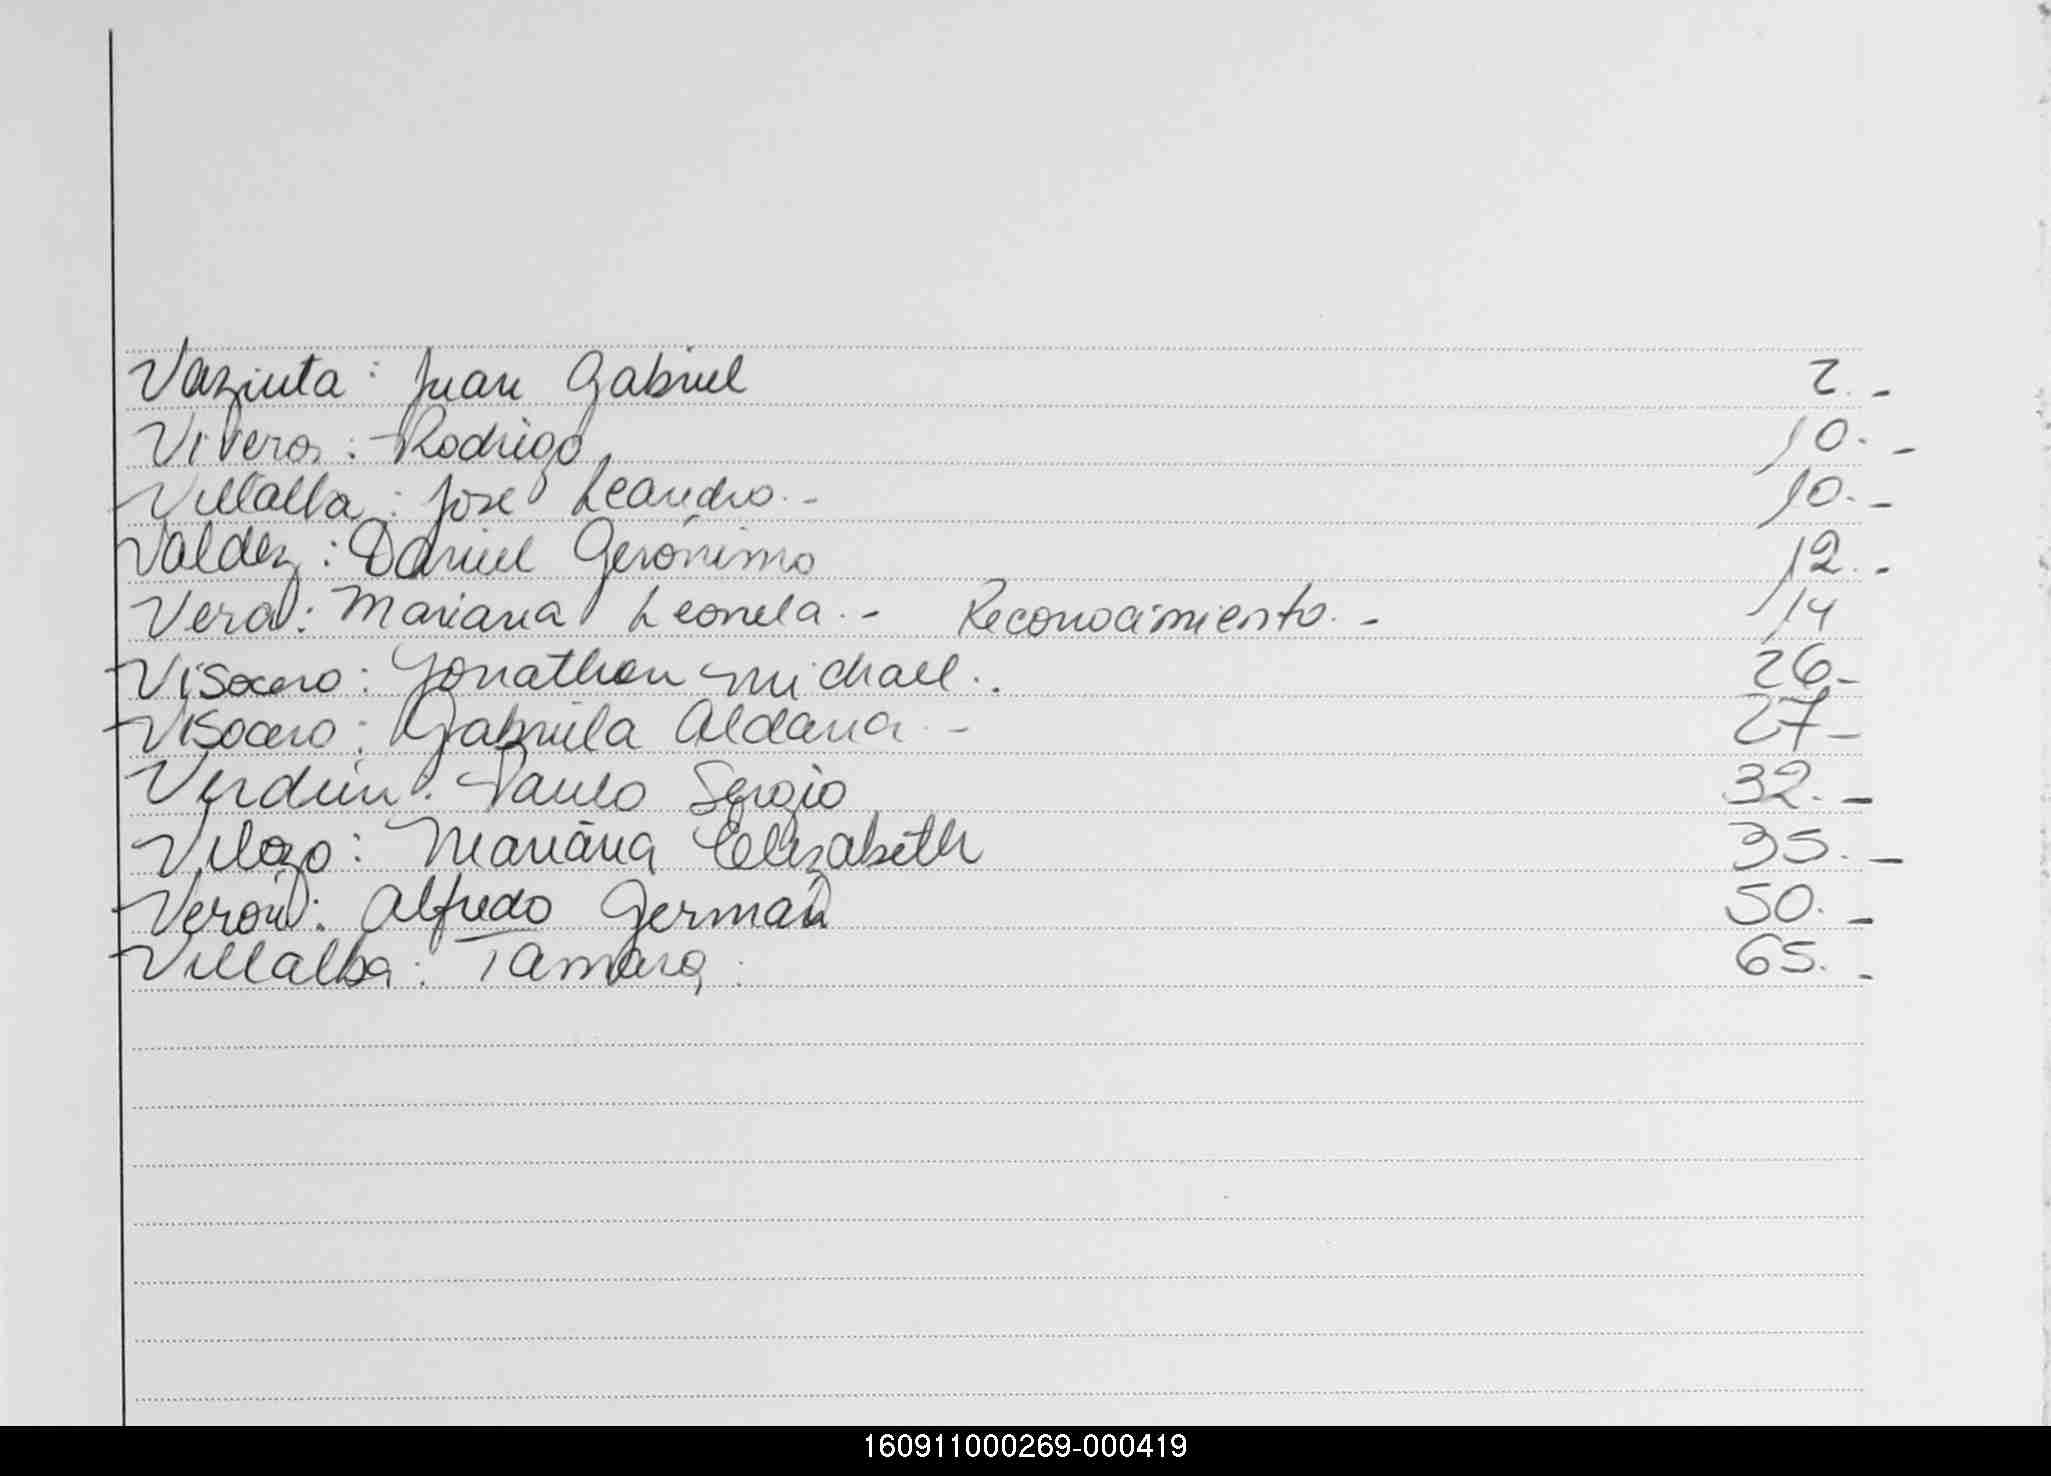 Vaziuta: Juan Gabriel 2.-
Viveros: Rodrigo 10.-
Villalba: José Leandro.- 10.-
Valdez: Daniel Gerónimo 12.-
Vera: Mariana Leonela.- Reconocimiento.- 14
Visocero: Jonathan Michael.. 26.-
Visocero: Gabriela Aldana.- 27-
Verdún: Paulo Sergio 32.-
Vilazo: Mariana Elizabeth 35.-
Verón: Alfredo German 50.-
Villalba: Tamara. 65.-
160911000269-000419